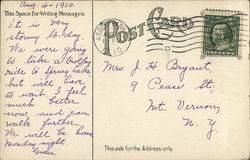 Aug. 4-1910.
This Space For Writing Messages
It is very
stormy to-day.
We were going
to take a trolley
ride to Spring Lake
but will have
to wait. I feel
much better
now, and can
walk further.
We will be home
Monday night.
POST CARD
Mrs. J. H. Bryant
9 Pease St.
Mt. Vernon,
N. Y.
This side for the Address only